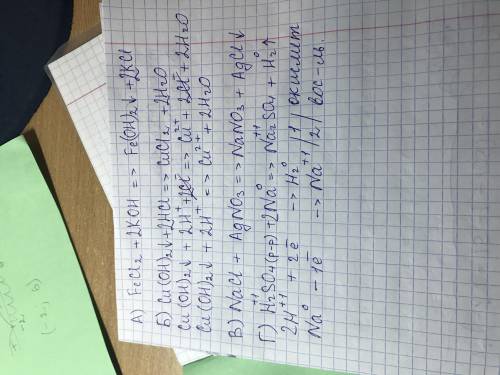 А) FeCl2 + 2KOH => Fe(OH)2↓ + 2KCl
Б) Cu(OH)2↓ + 2HCl => CuCl2 + 2H2O
Cu(OH)2↓ + 2H⁺ + 2Cl⁻ => Cu²⁺ + 2Cl⁻ + 2H2O
Cu(OH)2↓ + 2H⁺ => Cu²⁺ + 2H2O
В) NaCl + AgNO3 => NaNO3 + AgCl↓
Г) H2⁺¹SO4(р-р) + 2Na⁰ => Na2⁺¹SO4 + H2⁰↑
2H⁺¹ + 2e̅ -> H2⁰ | 1 | окислит
Na⁰ - 1e̅ -> Na⁺¹ | 2 | вос-ль.
(-2, 6)